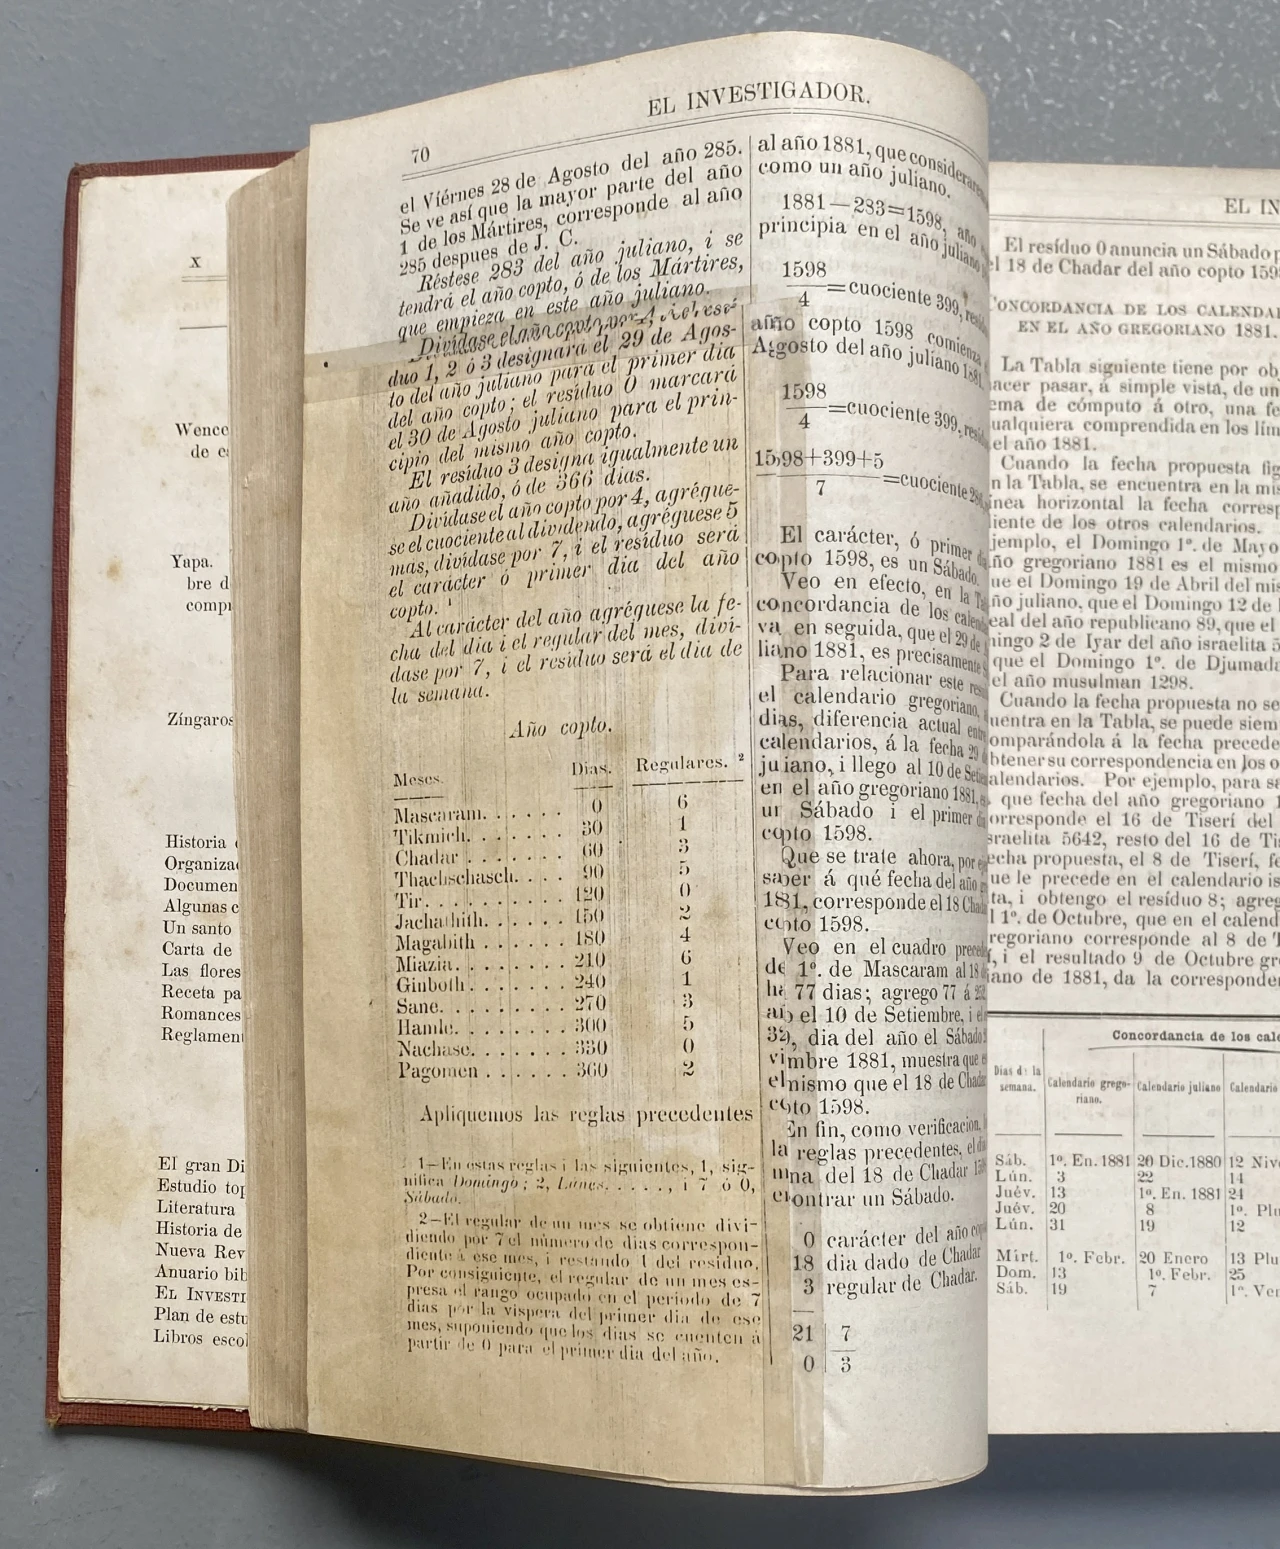 x
Wence
de c
Yupa.
bre d
compr
Zíngaros
Historia
Organiza
Documen
Algunas c
Un santo
Carta de
Las flores
Receta pa
Romances
Reglament
El gran Di
Estudio top
Literatura
Historia de
Nueva Rev
Anuario bib
EL INVESTI
Plan de estu
Libros escol
70
EL INVESTIGADOR.
el Viérnes 28 de Agosto del año 285.
Se ve así que la mayor parte del año
1 de los Mártires, corresponde al año
285 despues de J. C.
Réstese 283 del año juliano, i se
tendrá el año copto, ó de los Mártires,
que empieza en este año juliano.
Divídase el año copto por 4, i el resí-
duo 1, 2 ó 3 designará el 29 de Agos-
to del año juliano para el primer dia
del año copto; el resíduo 0 marcará
el 30 de Agosto juliano para el prin-
cipio del mismo año copto.
El resíduo 3 designa igualmente un
año añadido, ó de 366 dias.
Divídase el año copto por 4, agrégue-
se el cuociente al dividendo, agréguese 5
mas, divídase por 7, i el resíduo será
el carácter ó primer dia del año
copto. 1
Al carácter del año agréguese la fe-
cha del dia i el regular del mes, diví-
dase por 7, i el resíduo será el dia de
la semana.
Año copto.
Meses. Dias. Regulares. 2
Mascaram. . . . . . 0 6
Tikmich. . . . . . . 30 1
Chadar . . . . . . . 60 3
Thachschasch. . . . 90 5
Tir. . . . . . . . . 120 0
Jachathith. . . . . 150 2
Magabith . . . . . . 180 4
Miazia. . . . . . . . 210 6
Ginboth. . . . . . . 240 1
Sane. . . . . . . . . 270 3
Hamle. . . . . . . . 300 5
Nachase. . . . . . . 330 0
Pagomen . . . . . . 360 2
Apliquemos las reglas precedentes
1—En estas reglas i las siguientes, 1, sig-
nifica Domingo; 2, Lúnes. . . . ., i 7 ó 0,
Sábado.
2—El regular de un mes se obtiene divi-
diendo por 7 el número de dias correspon-
diente á ese mes, i restando 1 del resíduo.
Por consiguiente, el regular de un mes es-
presa el rango ocupado en el período de 7
dias por la víspera del primer dia de ese
mes, suponiendo que los dias se cuenten á
partir de 0 para el primer dia del año.
al año 1881, que consideraremos
como un año juliano.
1881—283=1598, año
principia en el año juliano
1598
4 =cuociente 399, resí
año copto 1598 comienza
Agosto del año juliano 1881.
1598
4 =cuociente 399, resí
1598+399+5
7 =cuociente 286,
El carácter, ó primer dia
copto 1598, es un Sábado.
Veo en efecto, en la Tabla
concordancia de los calenda
va en seguida, que el 29 de
liano 1881, es precisamente
Para relacionar este res
el calendario gregoriano,
dias, diferencia actual entre
calendarios, á la fecha 29 de
juliano, i llego al 10 de Setie
en el año gregoriano 1881, es
un Sábado i el primer dia
copto 1598.
Que se trate ahora, por
saber á qué fecha del año
1881, corresponde el 18 Chad
copto 1598.
Veo en el cuadro precede
de 1º. de Mascaram al 18 de
ha 77 dias; agrego 77 á 252
año el 10 de Setiembre, i el
32), dia del año el Sábado
viembre 1881, muestra que es
el mismo que el 18 de Chadar
copto 1598.
En fin, como verificacion,
la reglas precedentes, el dia
mana del 18 de Chadar 1598
contrar un Sábado.
0 carácter del año copto
18 dia dado de Chadar
3 regular de Chadar.
21 7
0 3
EL IN
El resíduo 0 anuncia un Sábado p
el 18 de Chadar del año copto 159
CONCORDANCIA DE LOS CALENDA
EN EL AÑO GREGORIANO 1881.
La Tabla siguiente tiene por ob
hacer pasar, á simple vista, de un
ema de cómputo á otro, una fe
ualquiera comprendida en los lím
el año 1881.
Cuando la fecha propuesta fig
n la Tabla, se encuentra en la mis
ínea horizontal la fecha corresp
iente de los otros calendarios.
jemplo, el Domingo 1º. de Mayo
ño gregoriano 1881 es el mismo
ue el Domingo 19 de Abril del mis
ño juliano, que el Domingo 12 de
eal del año republicano 89, que el
mingo 2 de Iyar del año israelita 5
que el Domingo 1º. de Djumada
el año musulman 1298.
Cuando la fecha propuesta no se
uentra en la Tabla, se puede siem
omparándola á la fecha precede
btener su correspondencia en los o
alendarios. Por ejemplo, para sa
que fecha del año gregoriano 1
orresponde el 16 de Tiserí del
sraelita 5642, resto del 16 de Ti
echa propuesta, el 8 de Tiserí, fe
ue le precede en el calendario is
ta, i obtengo el resíduo 8; agreg
l 1º. de Octubre, que en el calend
regoriano corresponde al 8 de T
í, i el resultado 9 de Octubre gre
iano de 1881, da la corresponde
Concordancia de los cale
Dias de la semana. Calendario grego-riano. Calendario juliano Calendario
Sáb. 1º. En. 1881 20 Dic.1880 12 Nivo
Lún. 3 22 14
Juév. 13 1º. En. 1881 24
Juév. 20 8 1º. Plu
Lún. 31 19 12
Mírt. 1º. Febr. 20 Enero 13 Plu
Dom. 13 1º. Febr. 25
Sáb. 19 7 1º. Ven